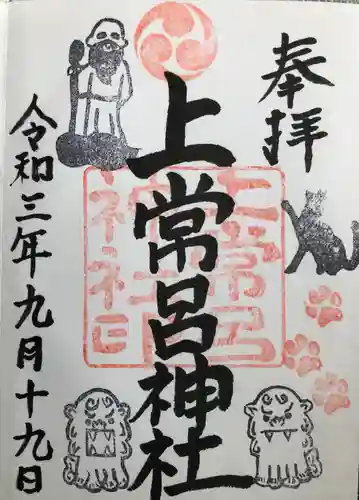 奉拝
上常呂神社
上常呂
神社
印
令和三年九月十九日